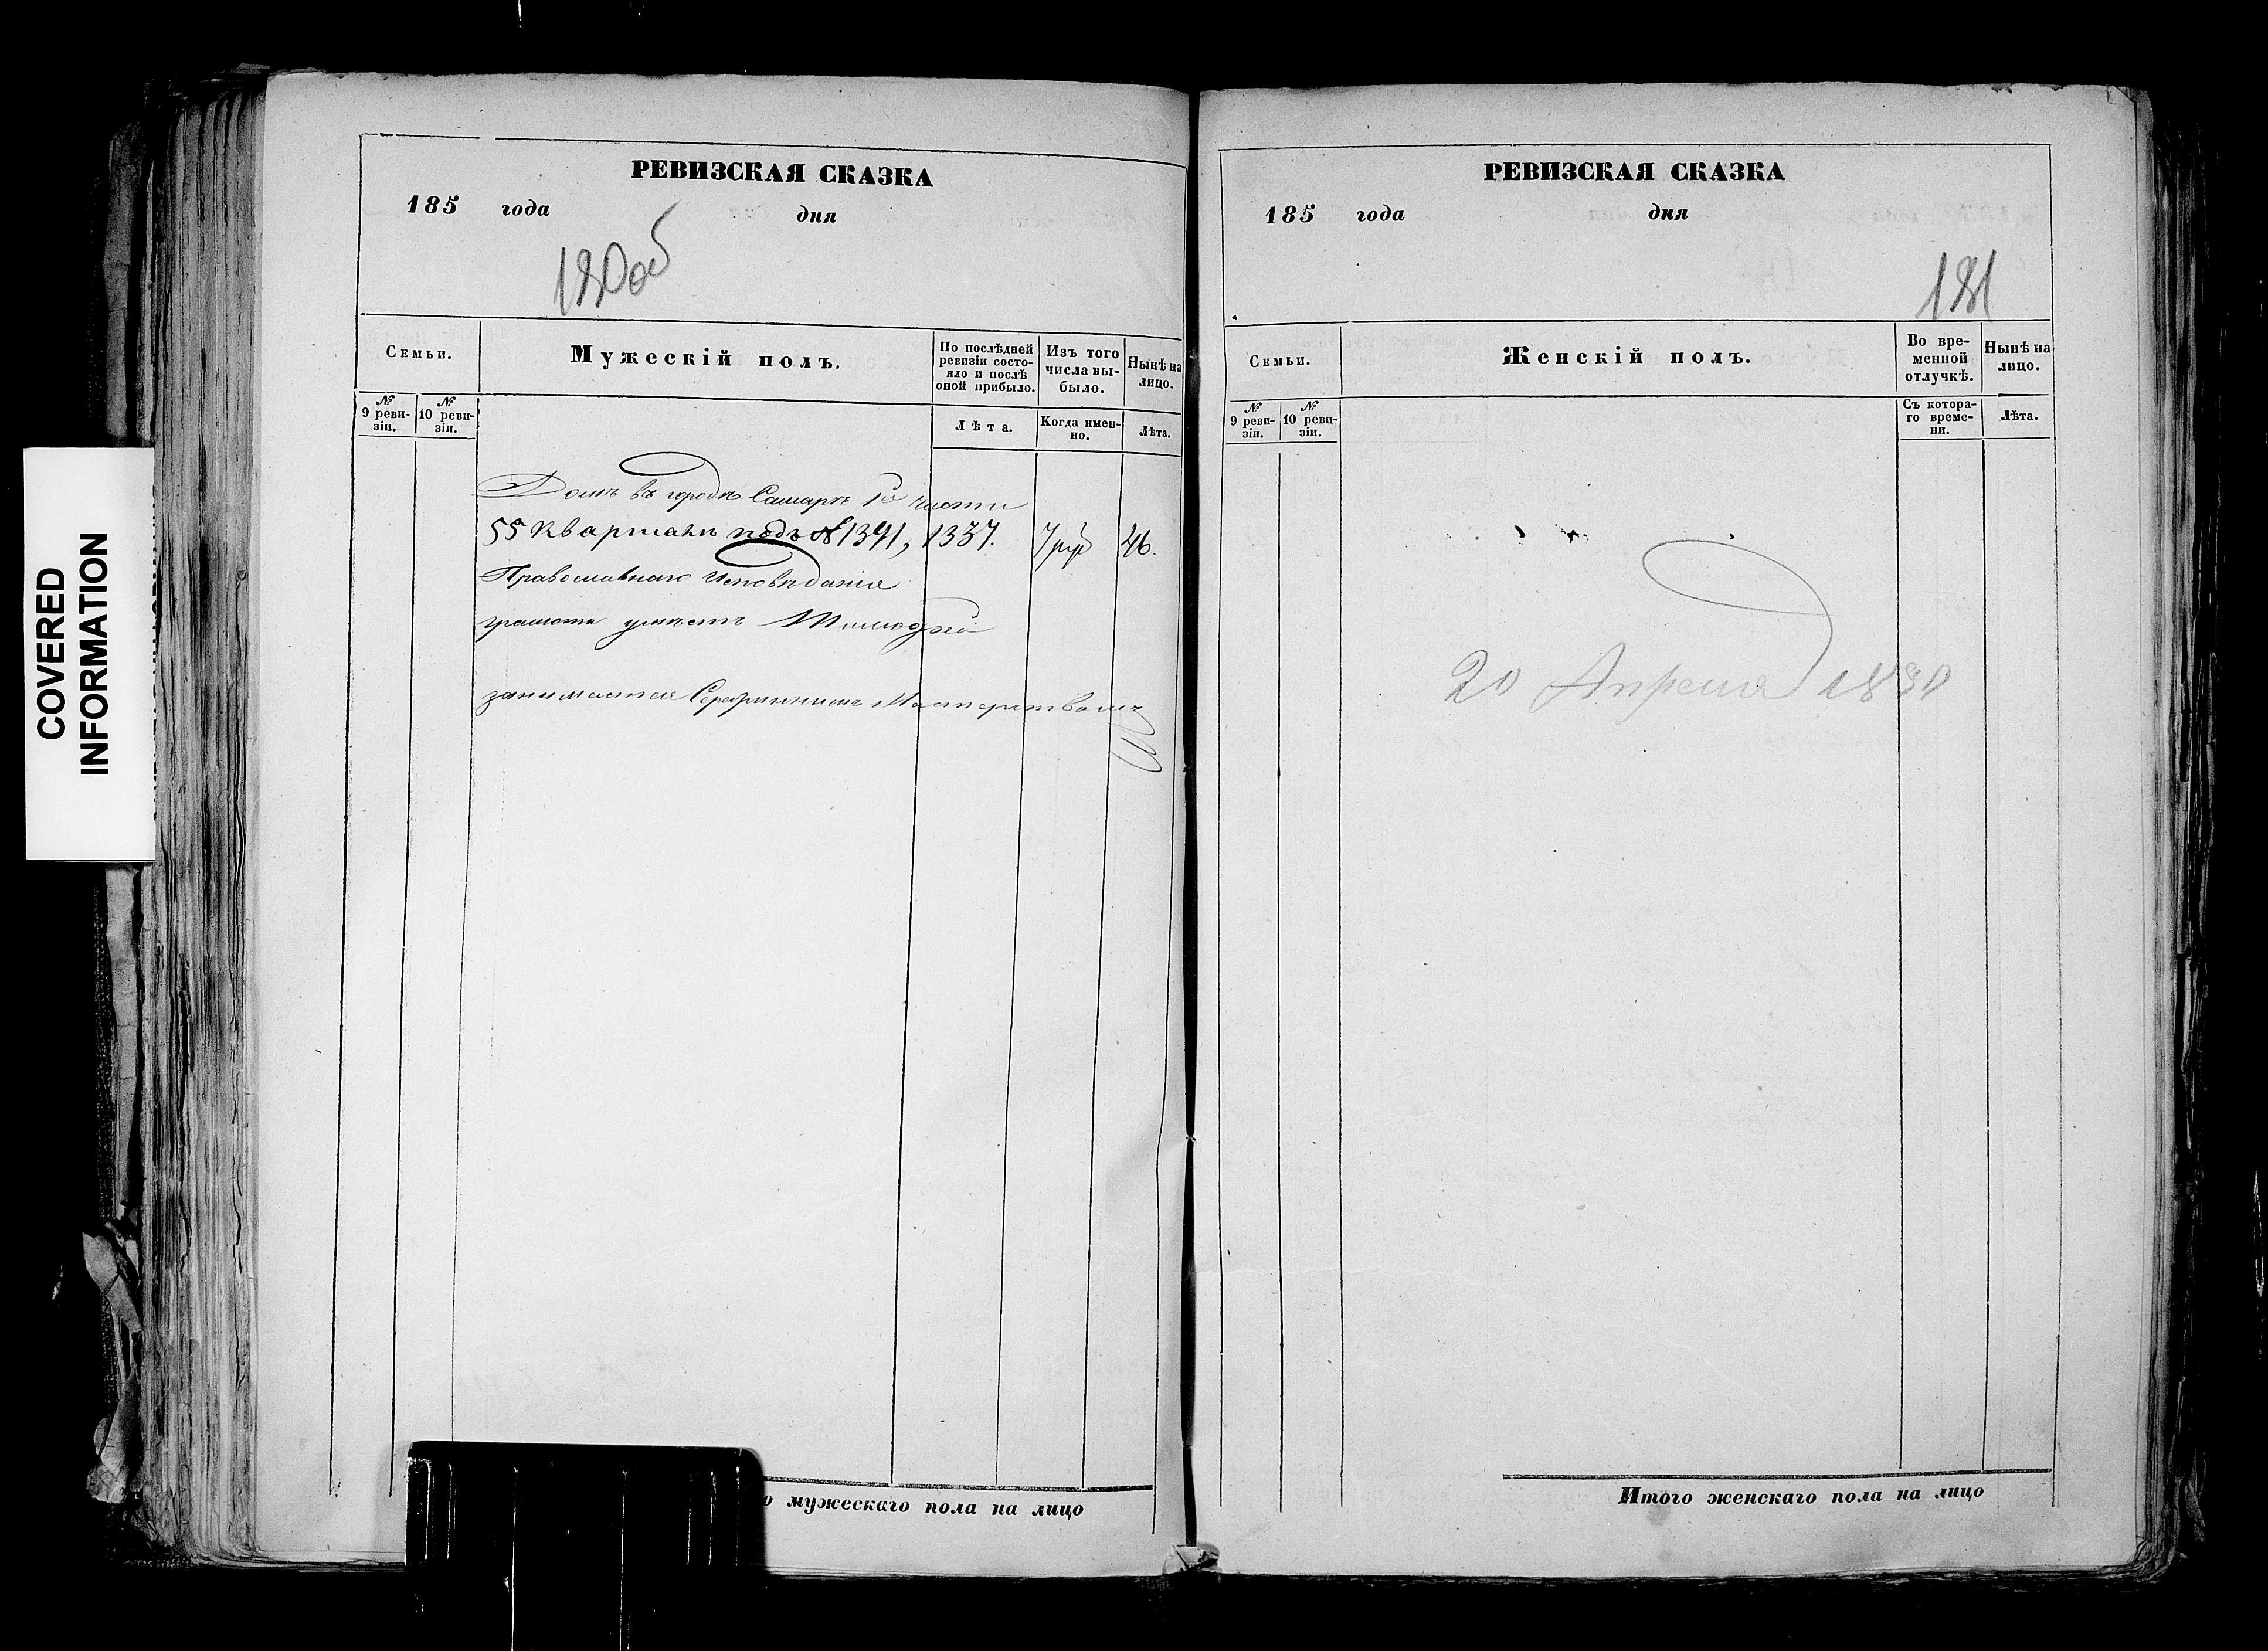 COVERED
INFORMATION
РЕВИЗСКАЯ СКАЗКА
185 года дня
180об
Семьи.
Мужескій полъ.
По послѣдней ревизіи состояло и послѣ оной прибыло.
Изъ того числа выбыло.
Нынѣ на лицо.
№ 9 ревизіи.
№ 10 ревизіи.
Лѣта.
Когда именно.
Лѣта.
Домъ въ городѣ Самарѣ 1й части
55 Кварталѣ подъ № 1391, 1337. 46.
Православнаго Исповѣданія
грамотѣ умѣетъ Тимофей
занимается Мастерствомъ
о мужескаго пола на лицо
РЕВИЗСКАЯ СКАЗКА
185 года дня
181
Семьи.
Женскій полъ.
Во временной отлучкѣ.
Нынѣ на лицо.
№ 9 ревизіи.
№ 10 ревизіи.
Съ котораго времени.
Лѣта.
20 Апреля
Итого женскаго пола на лицо